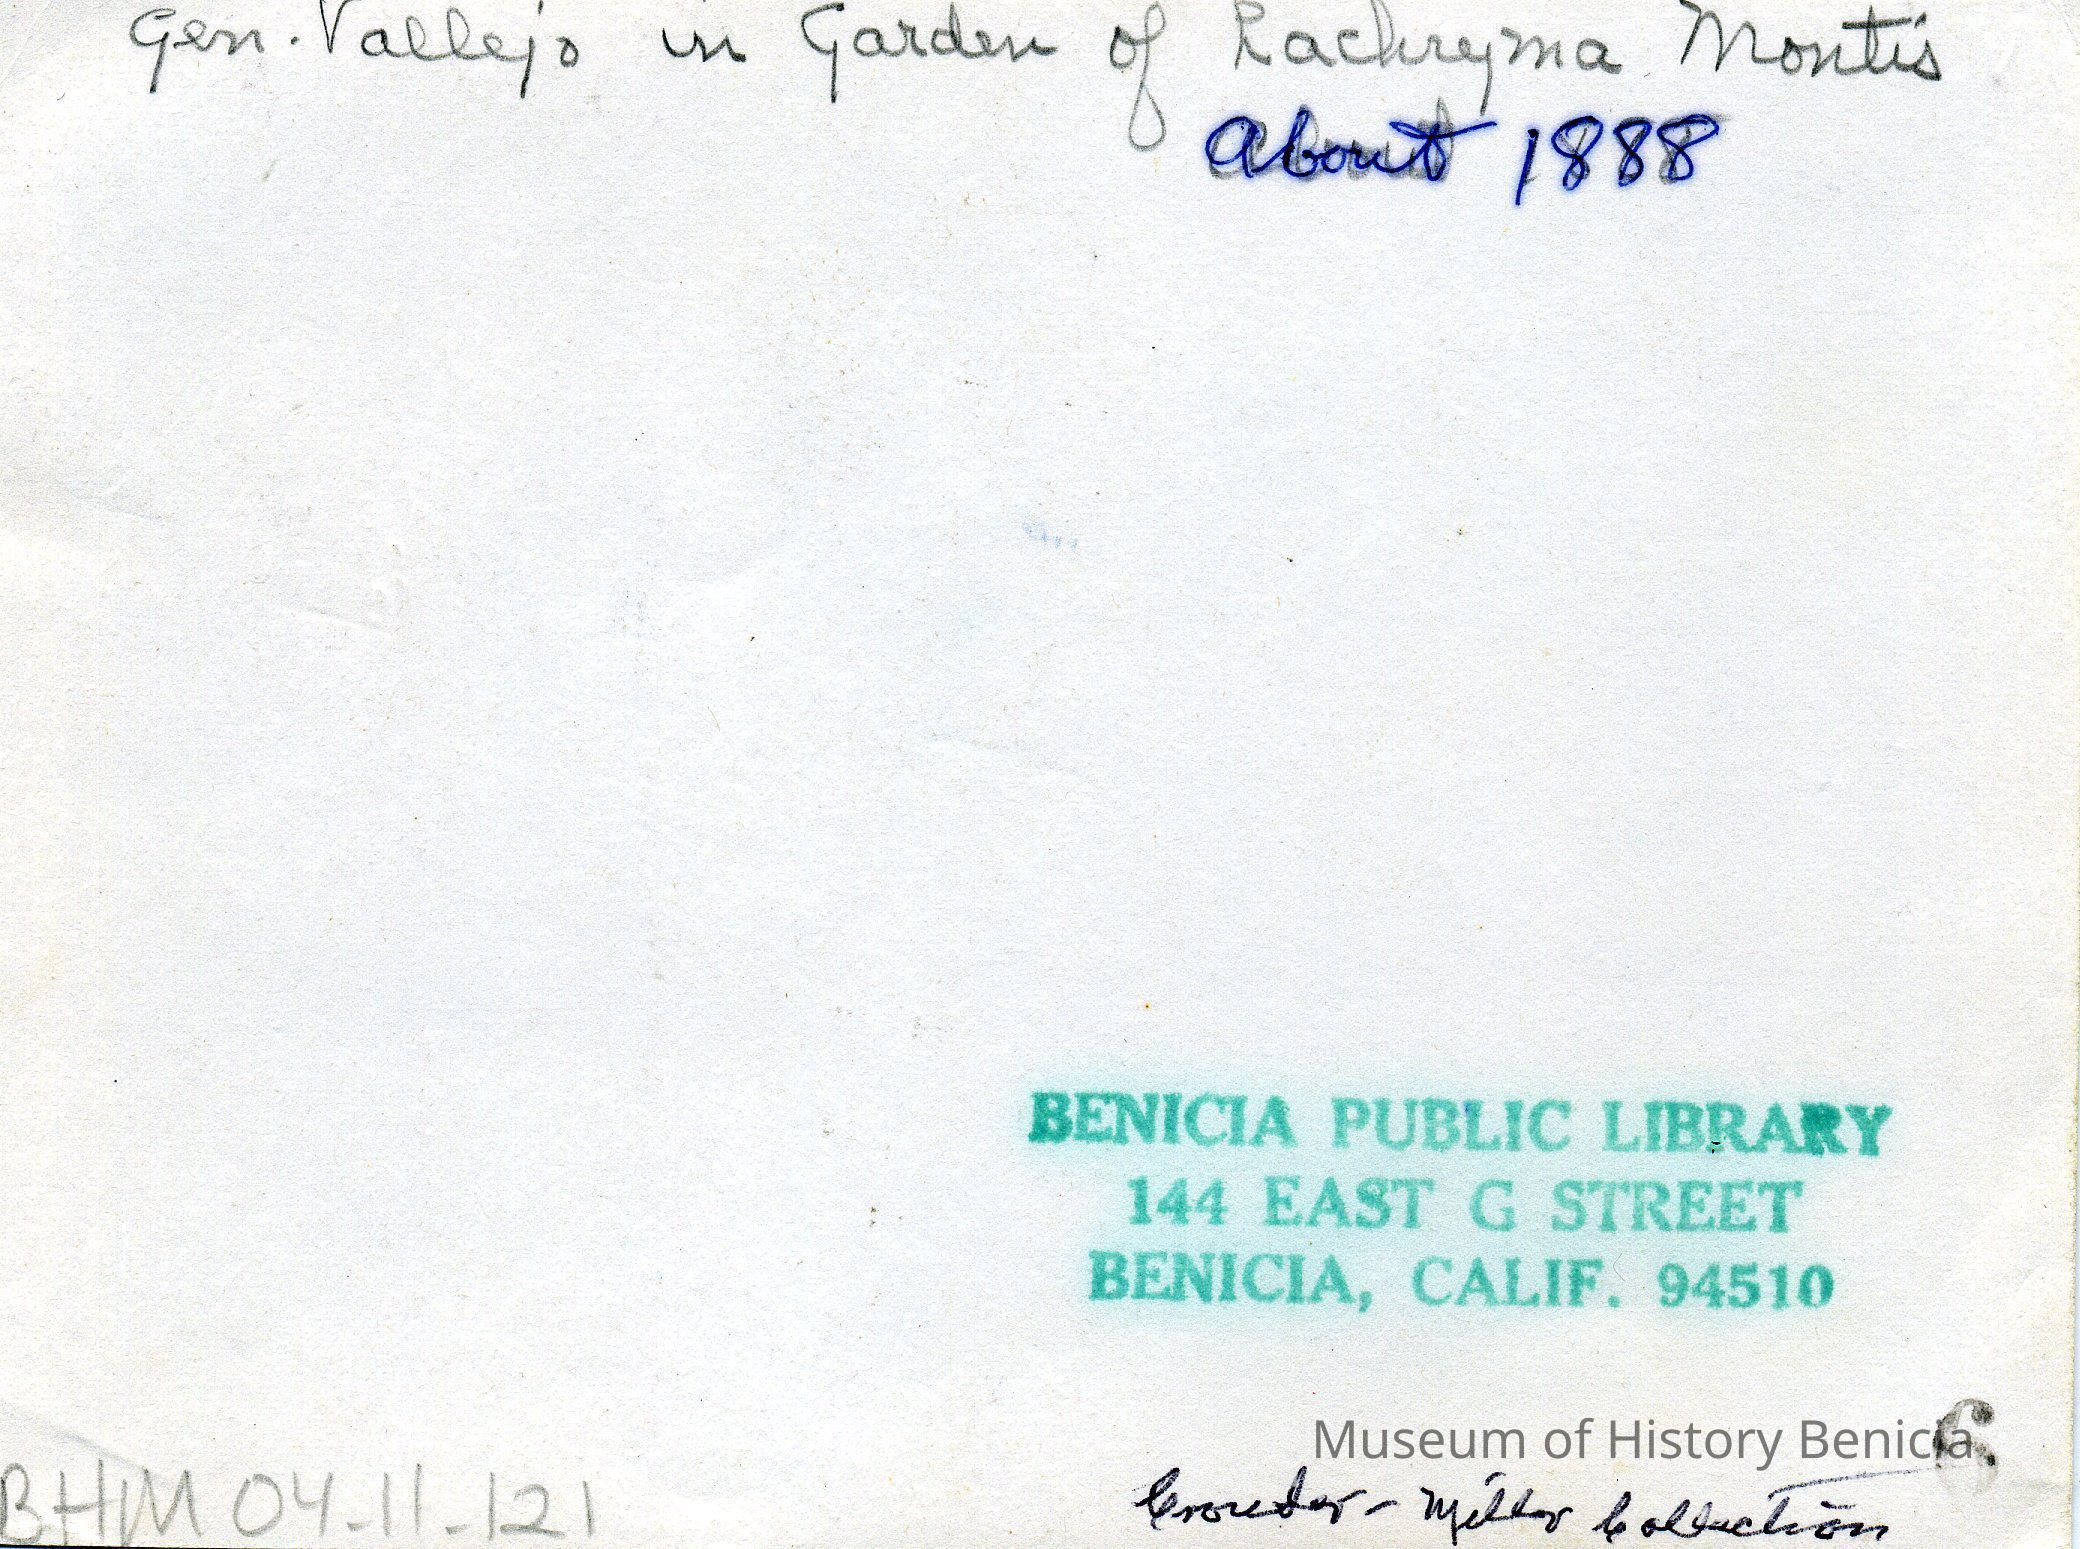 Gen. Vallejo in Garden of Lachryma Montis
About 1888
BENICIA PUBLIC LIBRARY
144 EAST G STREET
BENICIA, CALIF. 94510
Museum of History Benicia
6
Crowder-Miller Collection
BHM 04-11-121